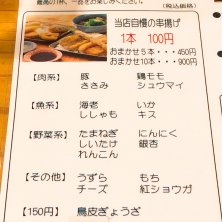 最高の1杯、一品をお楽しみください。
(税込価格)
当店自慢の串揚げ
1本 100円
おまかせ5本・・・450円
おまかせ10本・・・900円
【肉系】 豚 鶏モモ
ささみ シュウマイ
【魚系】 海老 いか
ししゃも キス
【野菜系】 たまねぎ にんにく
しいたけ 銀杏
れんこん
【その他】 うずら もち
チーズ 紅ショウガ
【150円】 鳥皮ぎょうざ